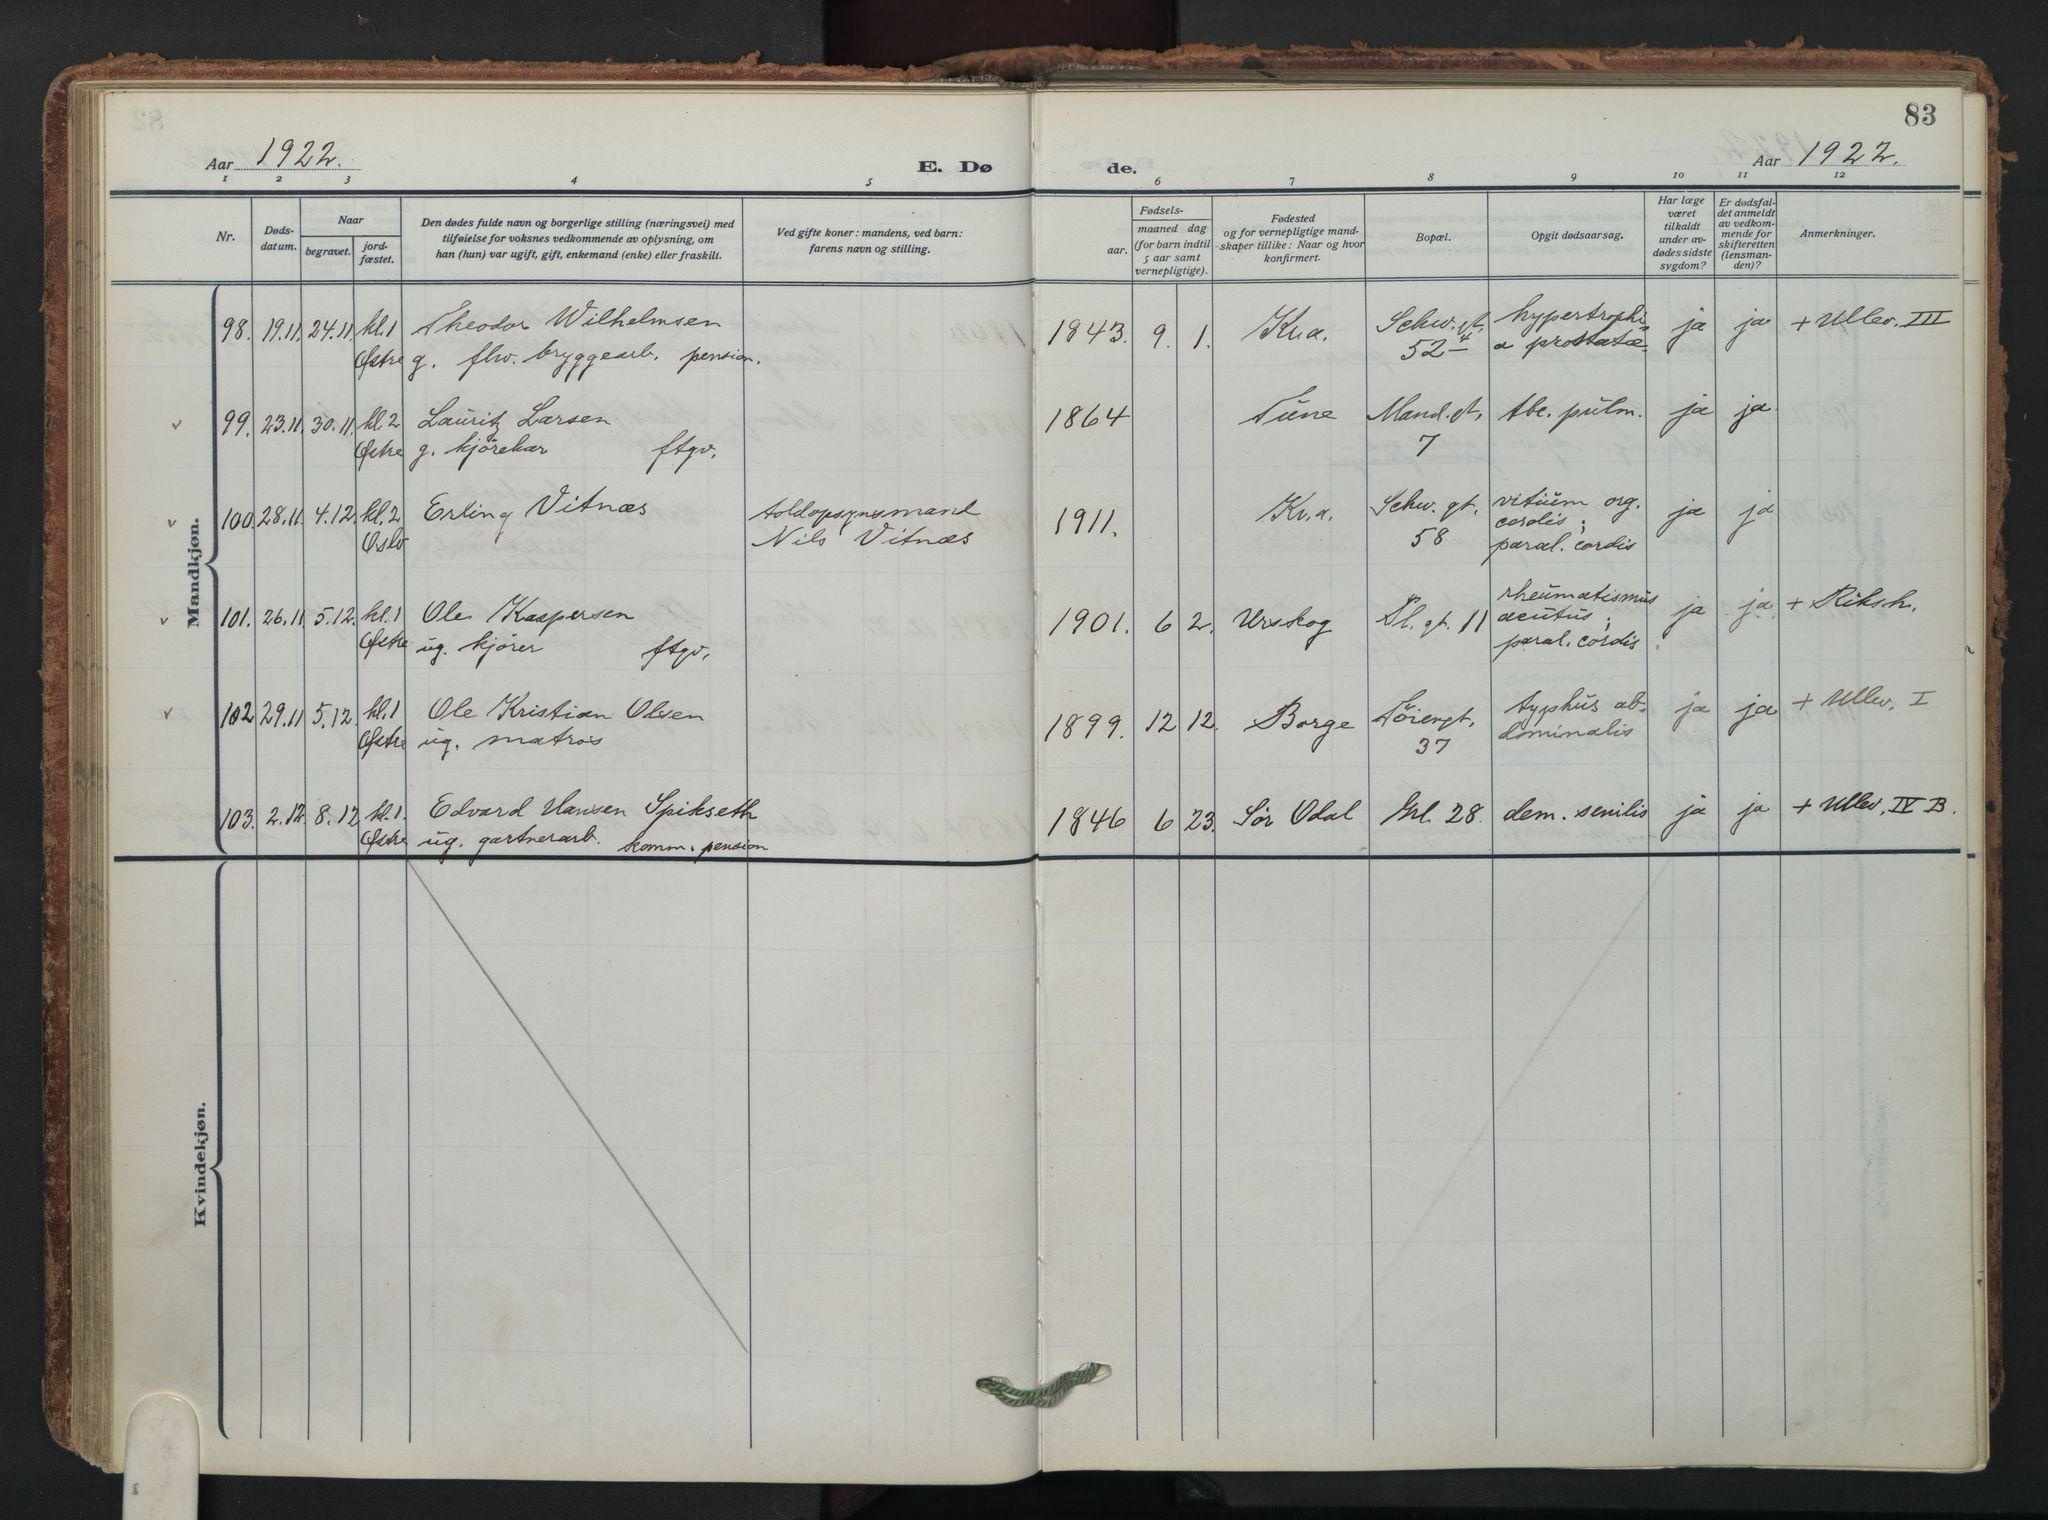 83
Aar 1922.
E. Dø
de.
Aar 1922.
1 2 3 4 5 6 7 8 9 10 11 12
Nr.
Døds-
datum.
Naar
begravet.
jord-
fæstet.
Den dødes fulde navn og borgerlige stilling (næringsvei) med
tilføielse for voksnes vedkommende av oplysning, om
han (hun) var ugift, gift, enkemand (enke) eller fraskilt.
Ved gifte koner: mandens, ved barn:
farens navn og stilling.
Fødsels-
aar.
maaned dag
(for barn indtil
5 aar samt
vernepligtige).
Fødested
og for vernepligtige mand-
skaper tillike: Naar og hvor
konfirmert.
Bopæl.
Opgit dødsaarsag.
Har læge
været
tilkaldt
under av-
dødes sidste
sygdom?
Er dødsfal-
det anmeldt
av vedkom-
mende for
skifteretten
(lensman-
den)?
Anmerkninger.
Mandkjøn.
98. 19.11. 24.11. kl.1 Theodor Wilhelmsen 1843. 9. 1. Kr.a. Schw.gt. hypertrophi- ja ja + Ullev. III
Østre g. flw. bryggearb. pension. 52 - 4 a prostatæ
99. 23.11. 30.11. kl.2 Lauritz Larsen 1864 Tune Mand.gt. tbc. pulm. ja ja
Østre g. kjørekar ftgv. 7
100. 28.11. 4.12. kl.2 Erling Vitnæs toldopsynsmand 1911. Kr.a. Schw. gt. vitium org. ja ja
Oslo Nils Vitnæs 58 cordis;
paral. cordis
101. 26.11. 5.12. kl.1 Ole Kaspersen 1901. 6 2. Urskog Pl. gt. 11 rheumatismus ja ja + Riksh.
Østre ug. kjører ftgv. acutus;
paral. cordis
102 29.11 5.12 kl.1 Ole Kristian Olsen 1899. 12 12. Borge Løiergt. typhus ab- ja ja + Ullev. I
Østre ug. matros 37 dominalis
103. 2.12. 8.12 kl.1 Edvard Hansen Spikseth 1846 6 23. Sör Odal Grl. 28. dem. senilis ja ja + Ullev. IV B.
Østre ug. gartnerarb. komm. pension
Kvindekjøn.